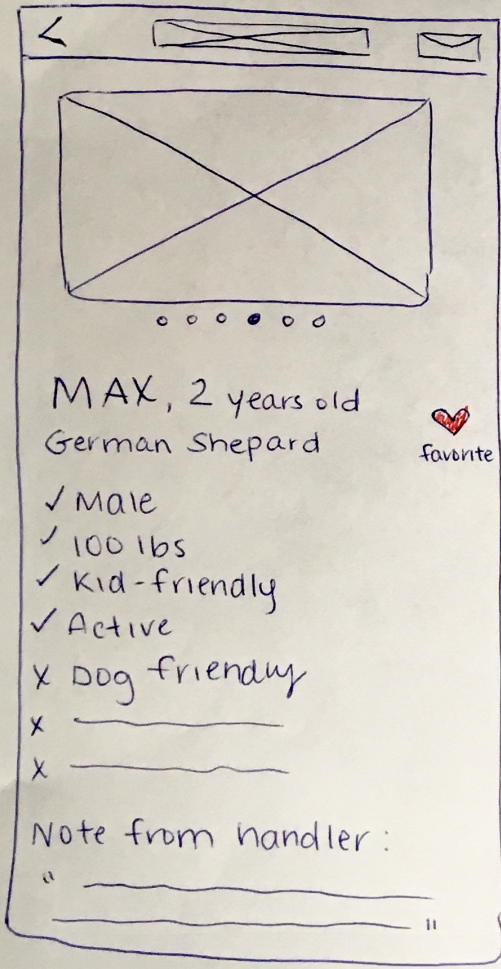 MAX, 2 years old
German Shepard
favorite
✓ Male
✓ 100 lbs
✓ Kid-friendly
✓ Active
x Dog friendly
x
x
Note from handler:
"
"